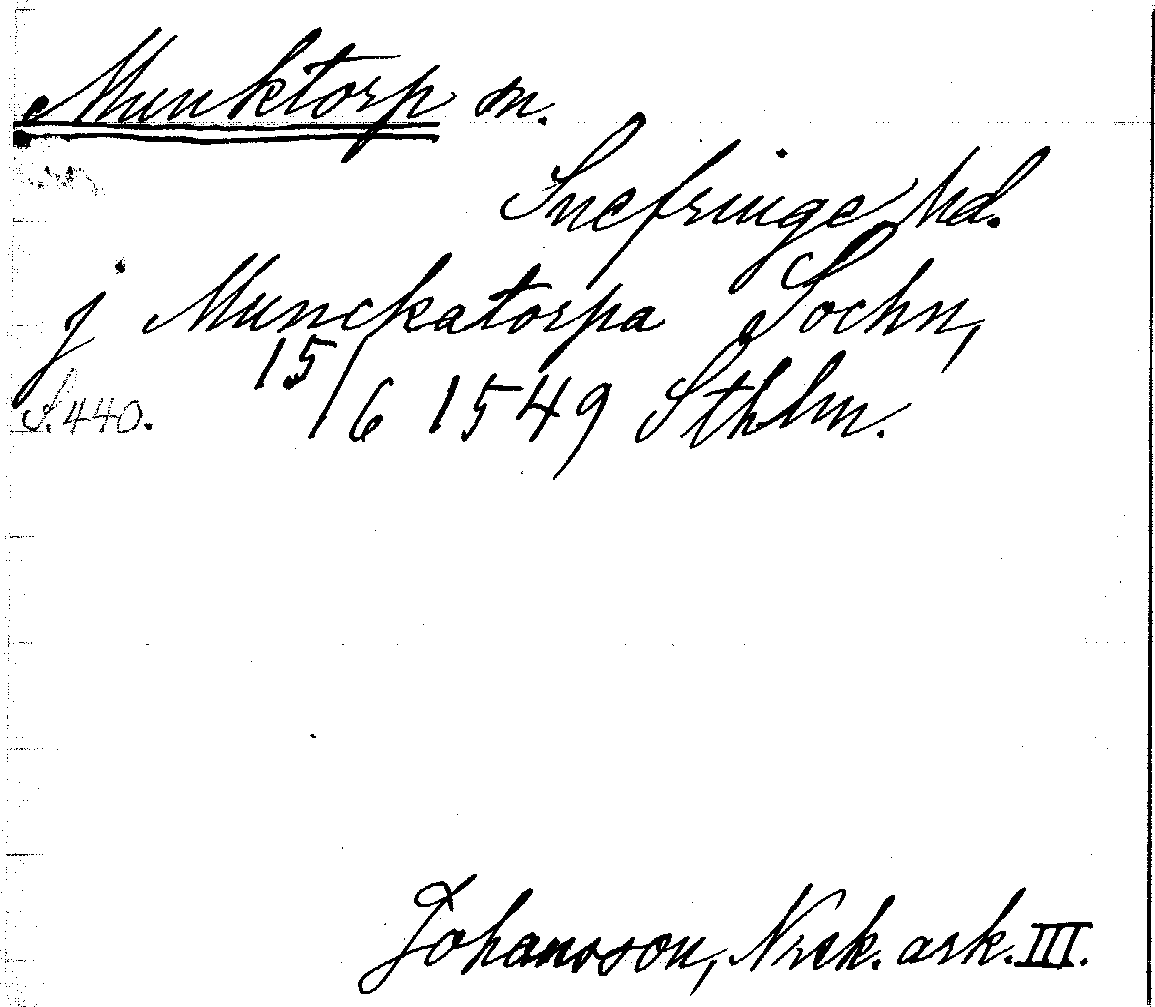 Munktorp sn.
Snefringe hd.
j Munckatorpa Sochn,
S. 440. 15/6 1549 Sthlm.
Johansson, Nrek. ark. III.